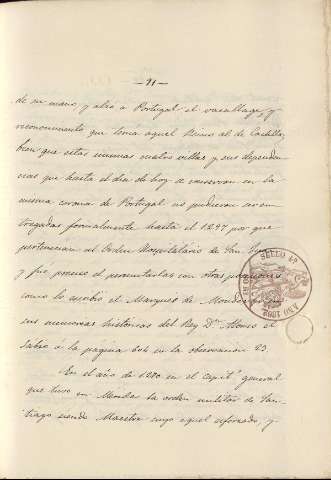 — 71 —
de su mano y alzó a Portugal el vasallage, y
reconocimiento que tenia aquel Reino al de Castilla,
bien que estas mismas cuatro villas y sus dependen
cias que hasta el dia de hoy se conservan en la
misma corona de Portugal no pudieron ser en
tregadas formalmente hasta el 1297 por que
pertenecian al Orden Hospitalario de San Juan
y fué preciso el permutarlas con otras posesiones
como lo escribió el Marques de Mondejar en
sus memorias históricas del Rey Dn. Alonso el
sabio á la página 604 en la observacion 23.
En el año de 1280 en el capitº general
que tuvo en Merida la orden militar de San-
tiago siendo Maestre suyo aquel esforzado, y
SELLO 10º
AÑO 1891